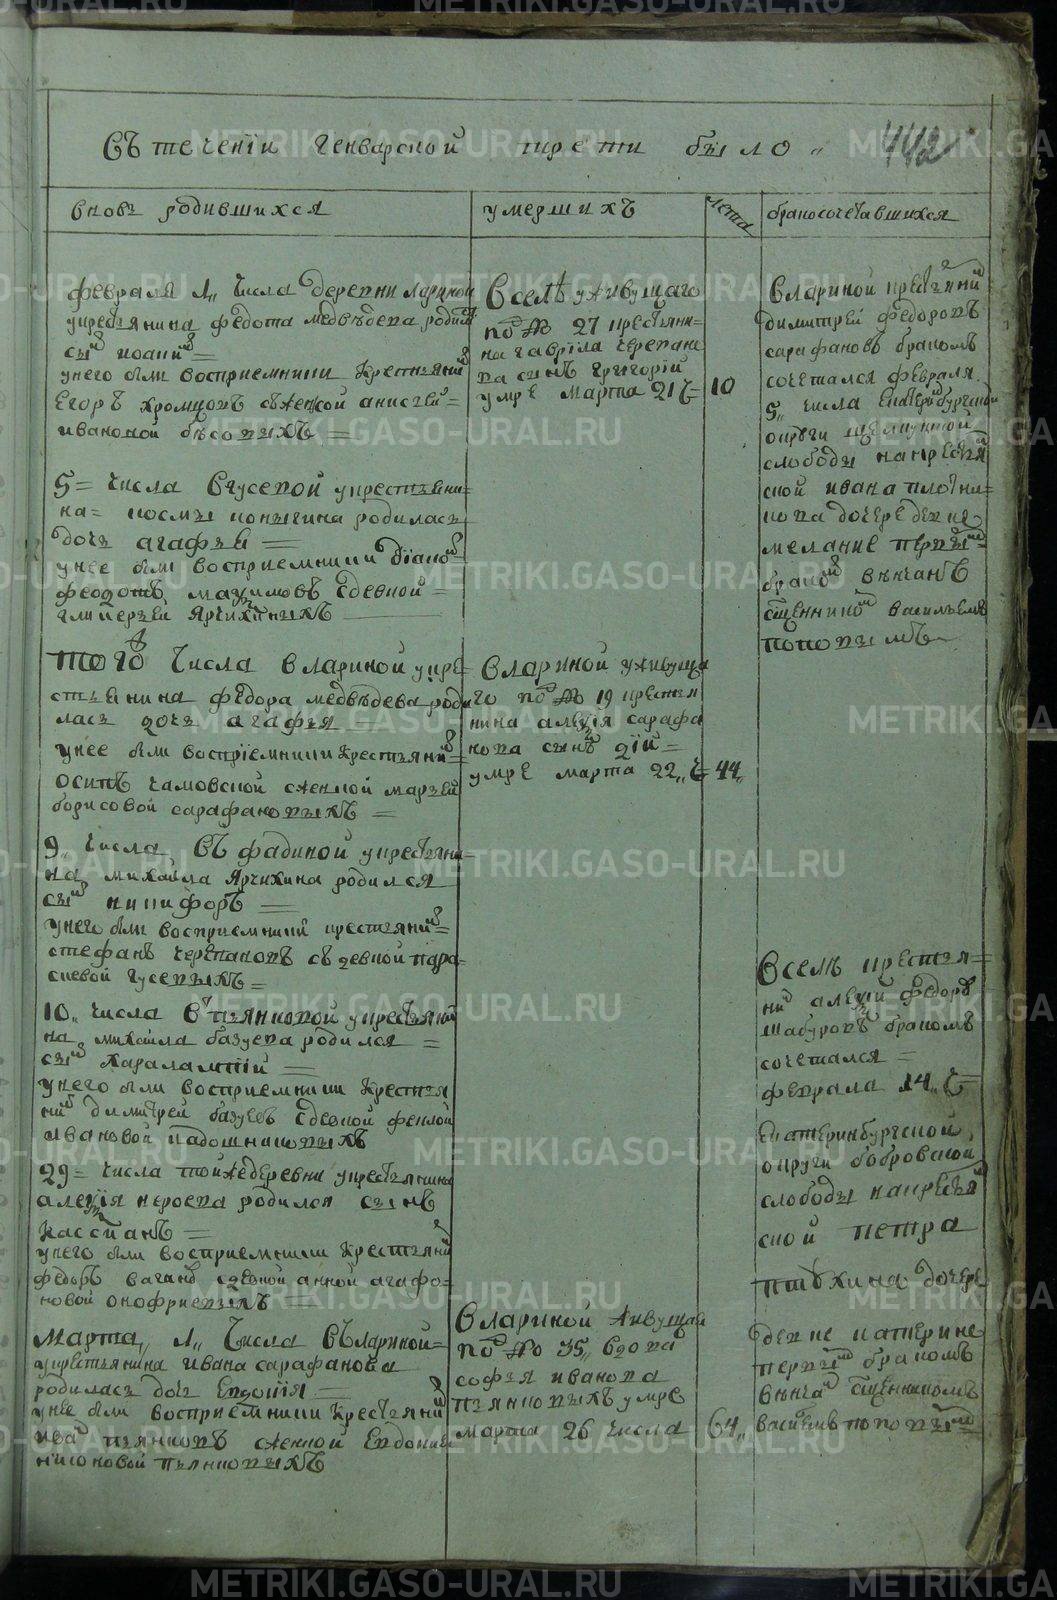 Съ теченіи генварской трети было
442
вновь родившихся
умершихъ
лета
бракосочетавшихся
февраля 1,, числа деревни лариной
укрестьянина федота медведева родил
сынъ иоаннъ
унего были восприемники крестьянинъ
Егоръ хромцовъ сженой анисьей
ивановой
5 = числа вгусевой укрестьяни
на космы коныгина родилась
дочь агафья
унее были восприемники
феодотъ максимовъ сдевкой
гликерьей ярчихиныхъ
того числа влариной укре
стьянина федора медведева роди
лась дочь агафья
унее были восприемники крестьянинъ
осипъ сженой марьей
борисовой сарафановыхъ
9,, числа въ фадиной укрестьяни
на михаила ярчихина родился
сынъ никифоръ
унего были восприемники крестьянинъ
стефанъ черепановъ съ девкой пара
скевой гусевыхъ
10,, числа впьянковой укрестьяни
на михаила базуева родился
сынъ харалампий
унего были восприемники крестья
нинъ димитрей базуевъ сдевкой феклой
ивановой кадошниковыхъ
29 = числа тойже деревни укрестьянина
алексия родился сынъ
кассианъ
унего были восприемники крестьянинъ
федоръ сдевкой анной агафо
новой онофриевыхъ
марта,, 1,, числа въ лариной
укрестьянина ивана сарафанова
родилась дочь евдокия
унее были восприемники крестьянинъ
иванъ пьянковъ сженой евдокией
никоновой пьянковыхъ
вселе уживущаго
по № 27 крестьяни
на гаврила черепано
ва сынъ григорий
умре марта 21 ч 10
влариной уживуща
го по № 19 крестья
нина алексия сарафа
нова сынъ
умре марта 22,, ч 44,,
влариной живущая
по № 35,, вдова
софья иванова
пьянковыхъ умре
марта 26 числа 64,,
влариной крестьянинъ
димитрей федоровъ
сарафановъ бракомъ
сочетался февраля
5,, числа Екатеринбургской
округи щелкунской
слободы накрестьян
ской ивана плотни
кова дочере девке
мелание первымъ
бракомъ венчанъ
священникомъ васильемъ
поповымъ
вселе крестья
нинъ алексий федоровъ
шабуровъ бракомъ
сочетался
февраля 14,, ч
Екатеринбургской
округи бобровской
слободы накрестьян
ской петра
птухина дочере
девке катерине
первымъ бракомъ
венчанъ священникомъ
васильемъ поповымъ
METRIKI.GASO-URAL.RU